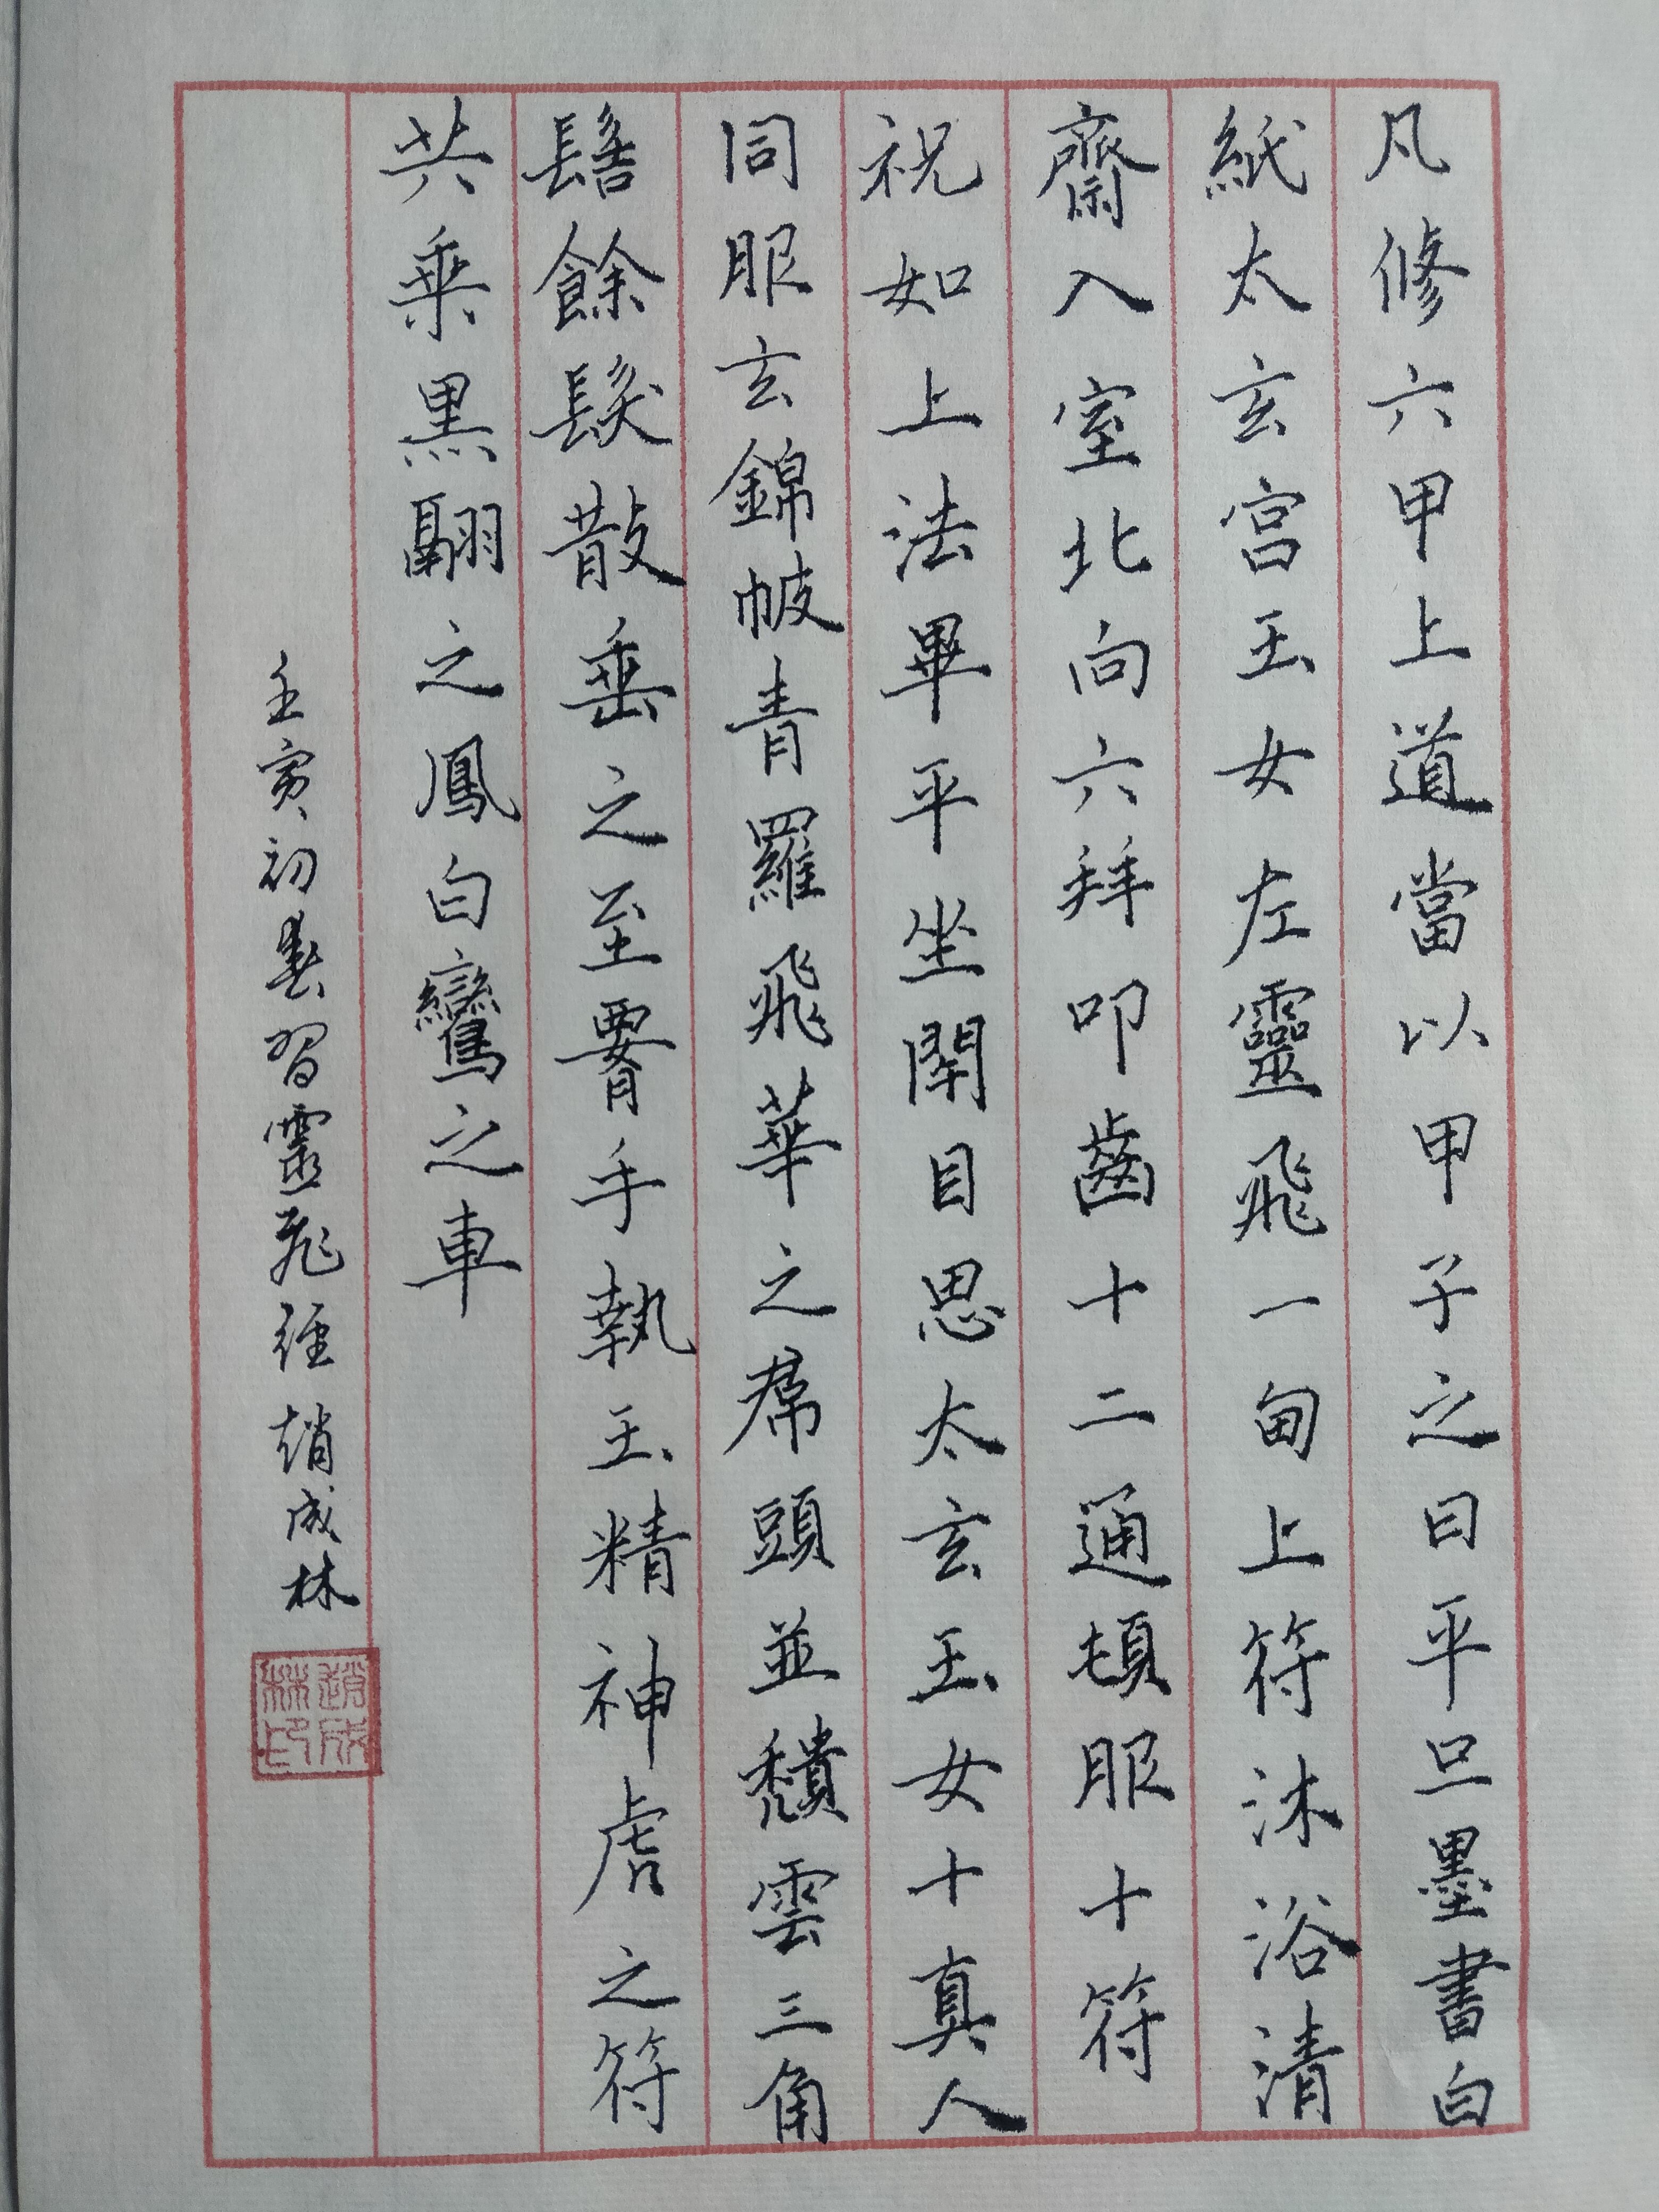 凡修六甲上道當以甲子之日平旦墨書白
紙太玄宮玉女左靈飛一旬上符沐浴清
齋入室北向六拜叩齒十二通頓服十符
祝如上法畢平坐閉目思太玄玉女十真人
同服玄錦帔青羅飛華之帬頭並頹雲三角
髻餘髮散垂之至要手執玉精神虎之符
共乘黑翮之鳳白鸞之車
壬寅初春習靈飛經趙成林
趙成林印